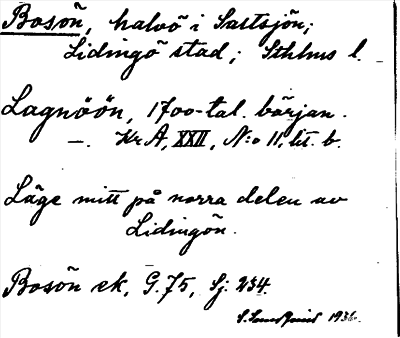 Bosön, halvö i Saltsjön;
Lidingö stad; Sthlms l.
Lagnöön, 1700-tal. början.
—. Kr A, XXII, N:o 11, lit. b.
Läge mitt på norra delen av
Lidingön.
Bosön ek, G. 75, Sj: 234.
1936.